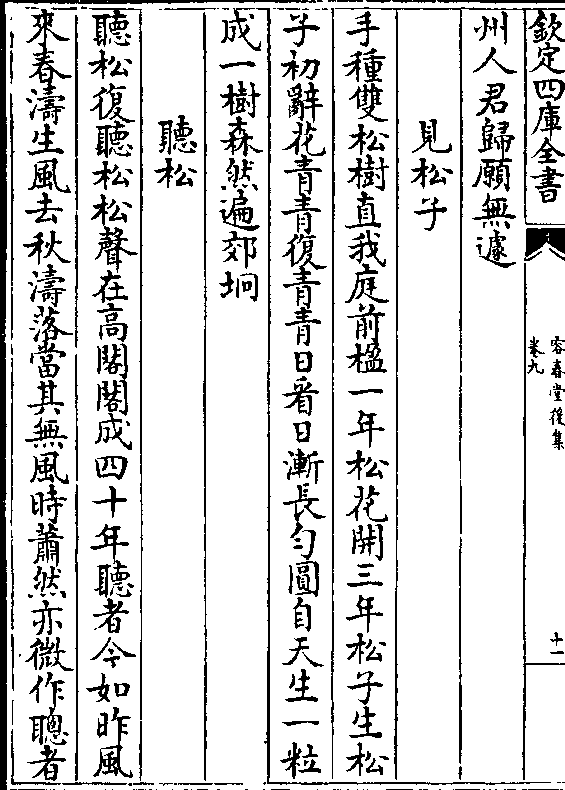 欽定四庫全書
容春堂後集
卷九
十一
州人君歸願無遽
見松子
手種雙松樹直我庭前楹一年松花開三年松子生松
子初辭花青青復青青日看日漸長勻圓自天生一粒
成一樹森然遍郊坰
聽松
聽松復聽松松聲在高閣閣成四十年聽者今如昨風
來春濤生風去秋濤落當其無風時蕭然亦微作聰者